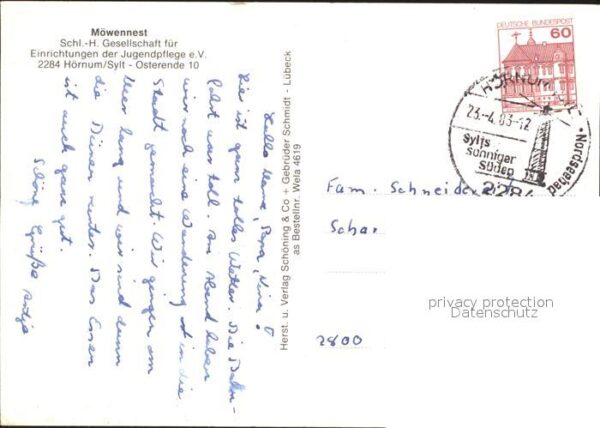 Möwennest
Schl.-H. Gesellschaft für
Einrichtungen der Jugendpflege e.V.
2284 Hörnum/Sylt - Osterende 10
Hallo Mama, Papa, Nina!
Hier ist ganz tolles Wetter. Die Bahn-
fahrt war toll. Am Abend haben
wir noch eine Wanderung in die
Stadt gemacht. Wir gingen am
Meer lang und wir sind dann
die Dünen runter. Das Essen
ist auch ganz gut.
Schöne Grüße Antje
Herst. u. Verlag Schöning & Co + Gebrüder Schmidt - Lübeck
as Bestellnr. Wela 4619
DEUTSCHE BUNDESPOST
60
HÖRNUM
23.-4.83-12
Sylts
sonniger
Süden
2284
Nordseebad
Fam. Schneider
Schar
2800
privacy protection
Datenschutz